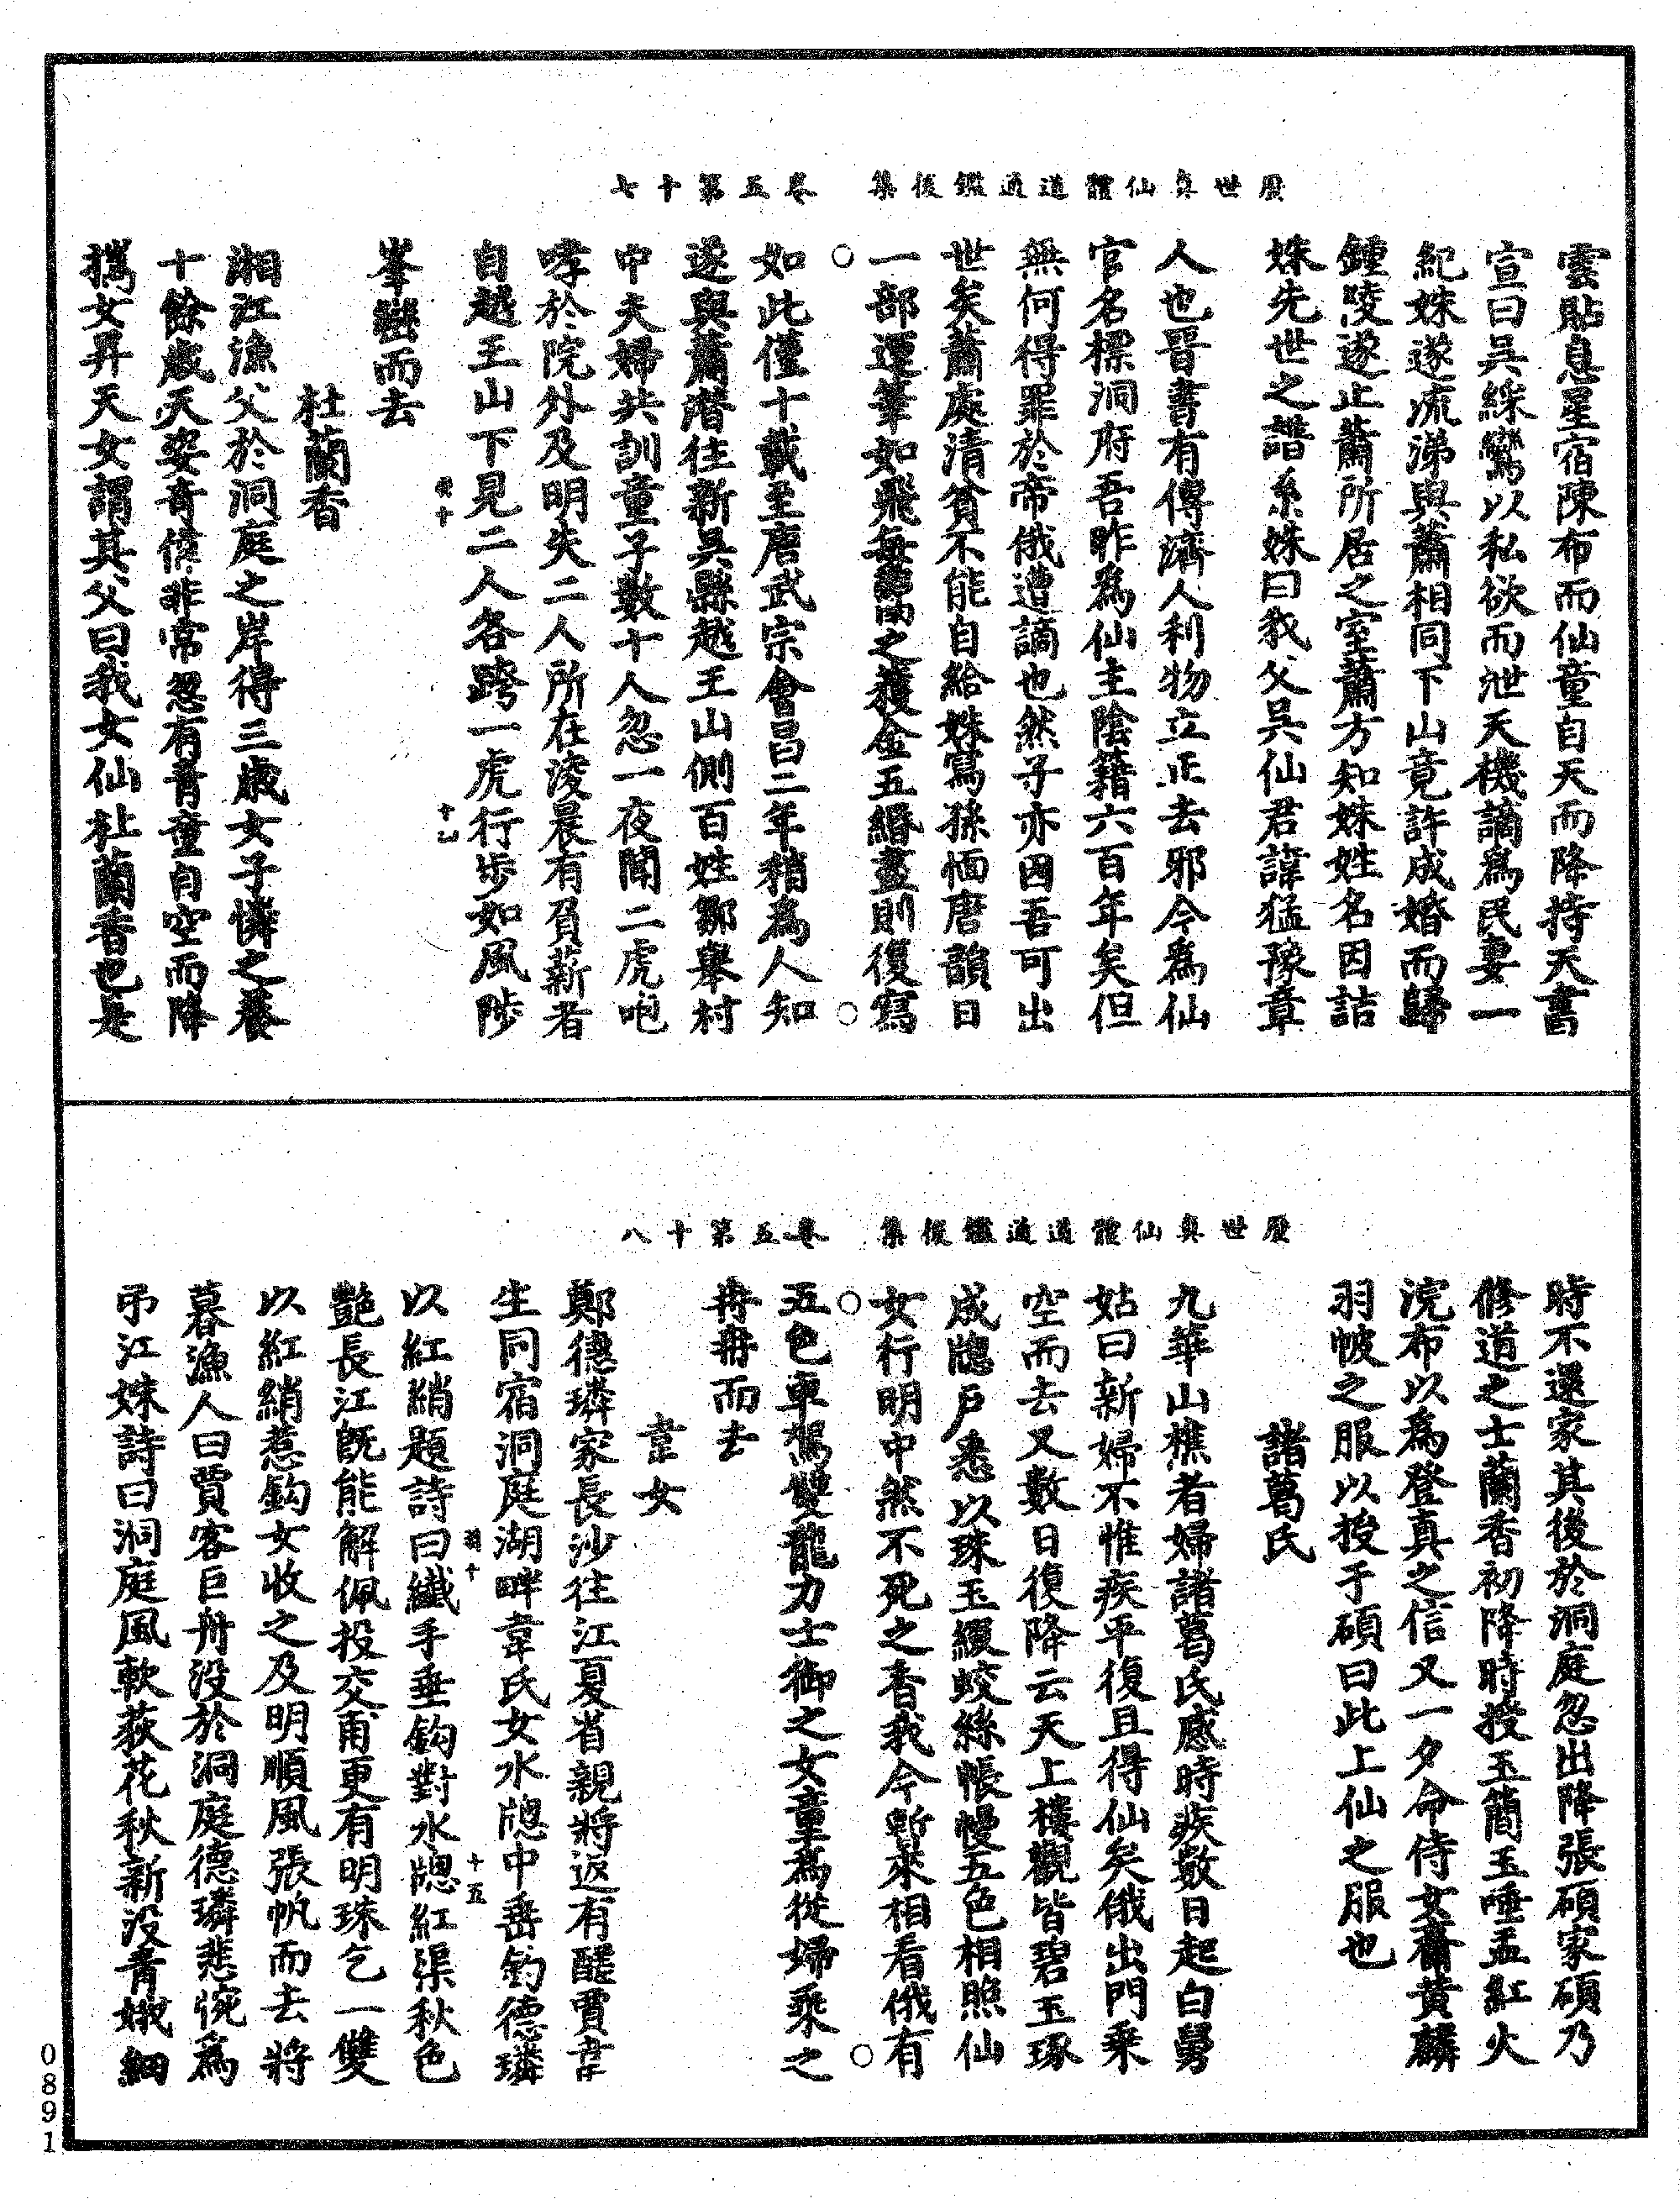 歷世真仙體道通鑑後集　卷五第十七
雲貼息星宿陳布而仙童自天而降持天書
宣曰吳綵鸞以私欲而泄天機謫爲民妻一
紀姝遂流涕與蕭相同下山竟許成婚而歸
鍾陵遂止蕭所居之室蕭方知姝姓名因詰
姝先世之譜系姝曰我父吳仙君諱猛豫章
人也晉書有傳濟人利物立正去邪今爲仙
官名標洞府吾昨爲仙主陰籍六百年矣但
無何得罪於帝俄遭謫也然子亦因吾可出
世矣蕭處清貧不能自給姝寫孫愐唐韻日
一部運筆如飛每鬻之獲金五緡盡則復寫
如此僅十載至唐武宗會昌二年稍爲人知
遂與蕭潛往新吳縣越王山側百姓鄒舉村
中夫婦共訓童子數十人忽一夜聞二虎咆
哮於院外及明失二人所在淩晨有負薪者
自越王山下見二人各跨一虎行步如風陟
峯巒而去
杜蘭香
湘江漁父於洞庭之岸得三歲女子憐之養
十餘歲天姿奇偉非常忽有青童自空而降
携女昇天女謂其父曰我女仙杜蘭香也是
歷世真仙體道通鑑後集　卷五第十八
時不還家其後於洞庭忽出降張碩家碩乃
修道之士蘭香初降時授玉簡玉唾盂紅火
浣布以爲登真之信又一夕命侍女齎黃麟
羽帔之服以授于碩曰此上仙之服也
諸葛氏
九華山樵者婦諸葛氏感時疾數日起白舅
姑曰新婦不惟疾平復且得仙矣俄出門乘
空而去又數日復降云天上樓觀皆碧玉琢
成牕戶悉以珠玉綴蛟絲帳幔五色相照仙
女行明中然不死之香我今暫來相看俄有
五色車駕雙龍力士御之女童爲從婦乘之
冉冉而去
韋女
鄭德璘家長沙往江夏省親將返有醝賈韋
生同宿洞庭湖畔韋氏女水牕中垂釣德璘
以紅綃題詩曰纖手垂鈎對水牕紅渠秋色
艷長江旣能解佩投交甫更有明珠乞一雙
以紅綃惹鈎女收之及明順風張帆而去將
暮漁人曰賈客巨舟沒於洞庭德璘悲惋爲
弔江姝詩曰洞庭風軟荻花秋新沒青娥細
0891